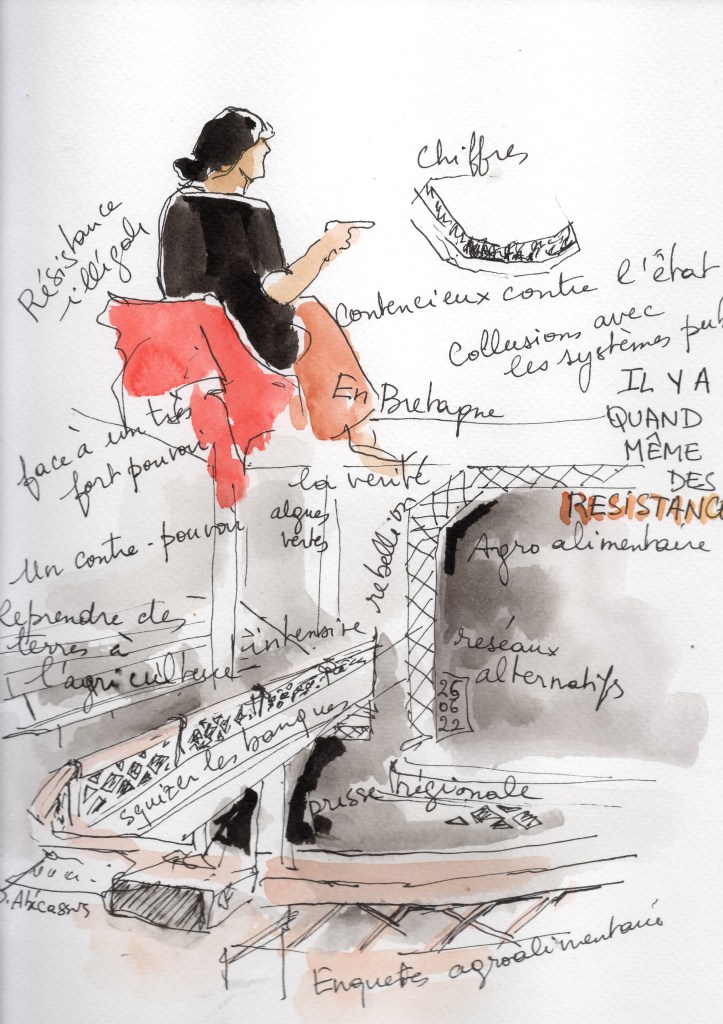 chiffres
Résistance
illégale
contencieux contre l'état
collusions avec
les systèmes pub
IL Y A
QUAND
MÊME
DES
RESISTANCE
En Bretagne
face à un très
fort pouvoir
la vérité
algues
vertes
rebellion
Agro alimentaire
Un contre-pouvoir
Reprendre des
terres à
l'agriculture - intensive
réseaux
alternatifs
26
06
22
squizer les banques
presse régionale
Abécassis
Enquetes agroalimentaire